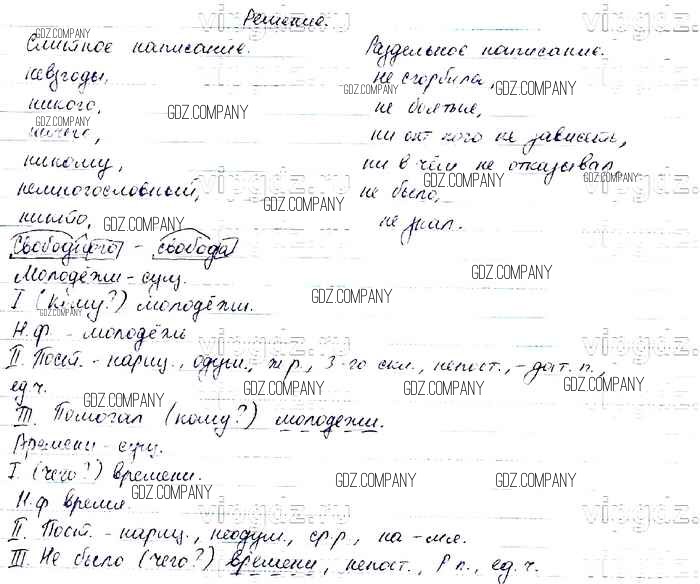 Решение.
Слитное написание.
Раздельное написание.
невзгоды,
не сгорбила,
никого,
не боятые,
ничего,
ни от кого не зависеть,
никому,
ни в чём не отказывал
немногословный,
не было,
никто,
не знал.
Свободного - свобода
Молодёжи - сущ.
I (кому?) молодёжи.
Н.ф. - молодёжь
II. Пост. - нариц., одуш., ж.р., 3-го скл., непост., - дат. п.,
ед.ч.
III. Помогал (кому?) молодежи.
Времени - сущ.
I. (чего?) времени.
Н.ф время.
II. Пост. - нариц., неодуш., ср.р, на -мя.
III. Не было (чего?) времени, непост., Р п., ед.ч.